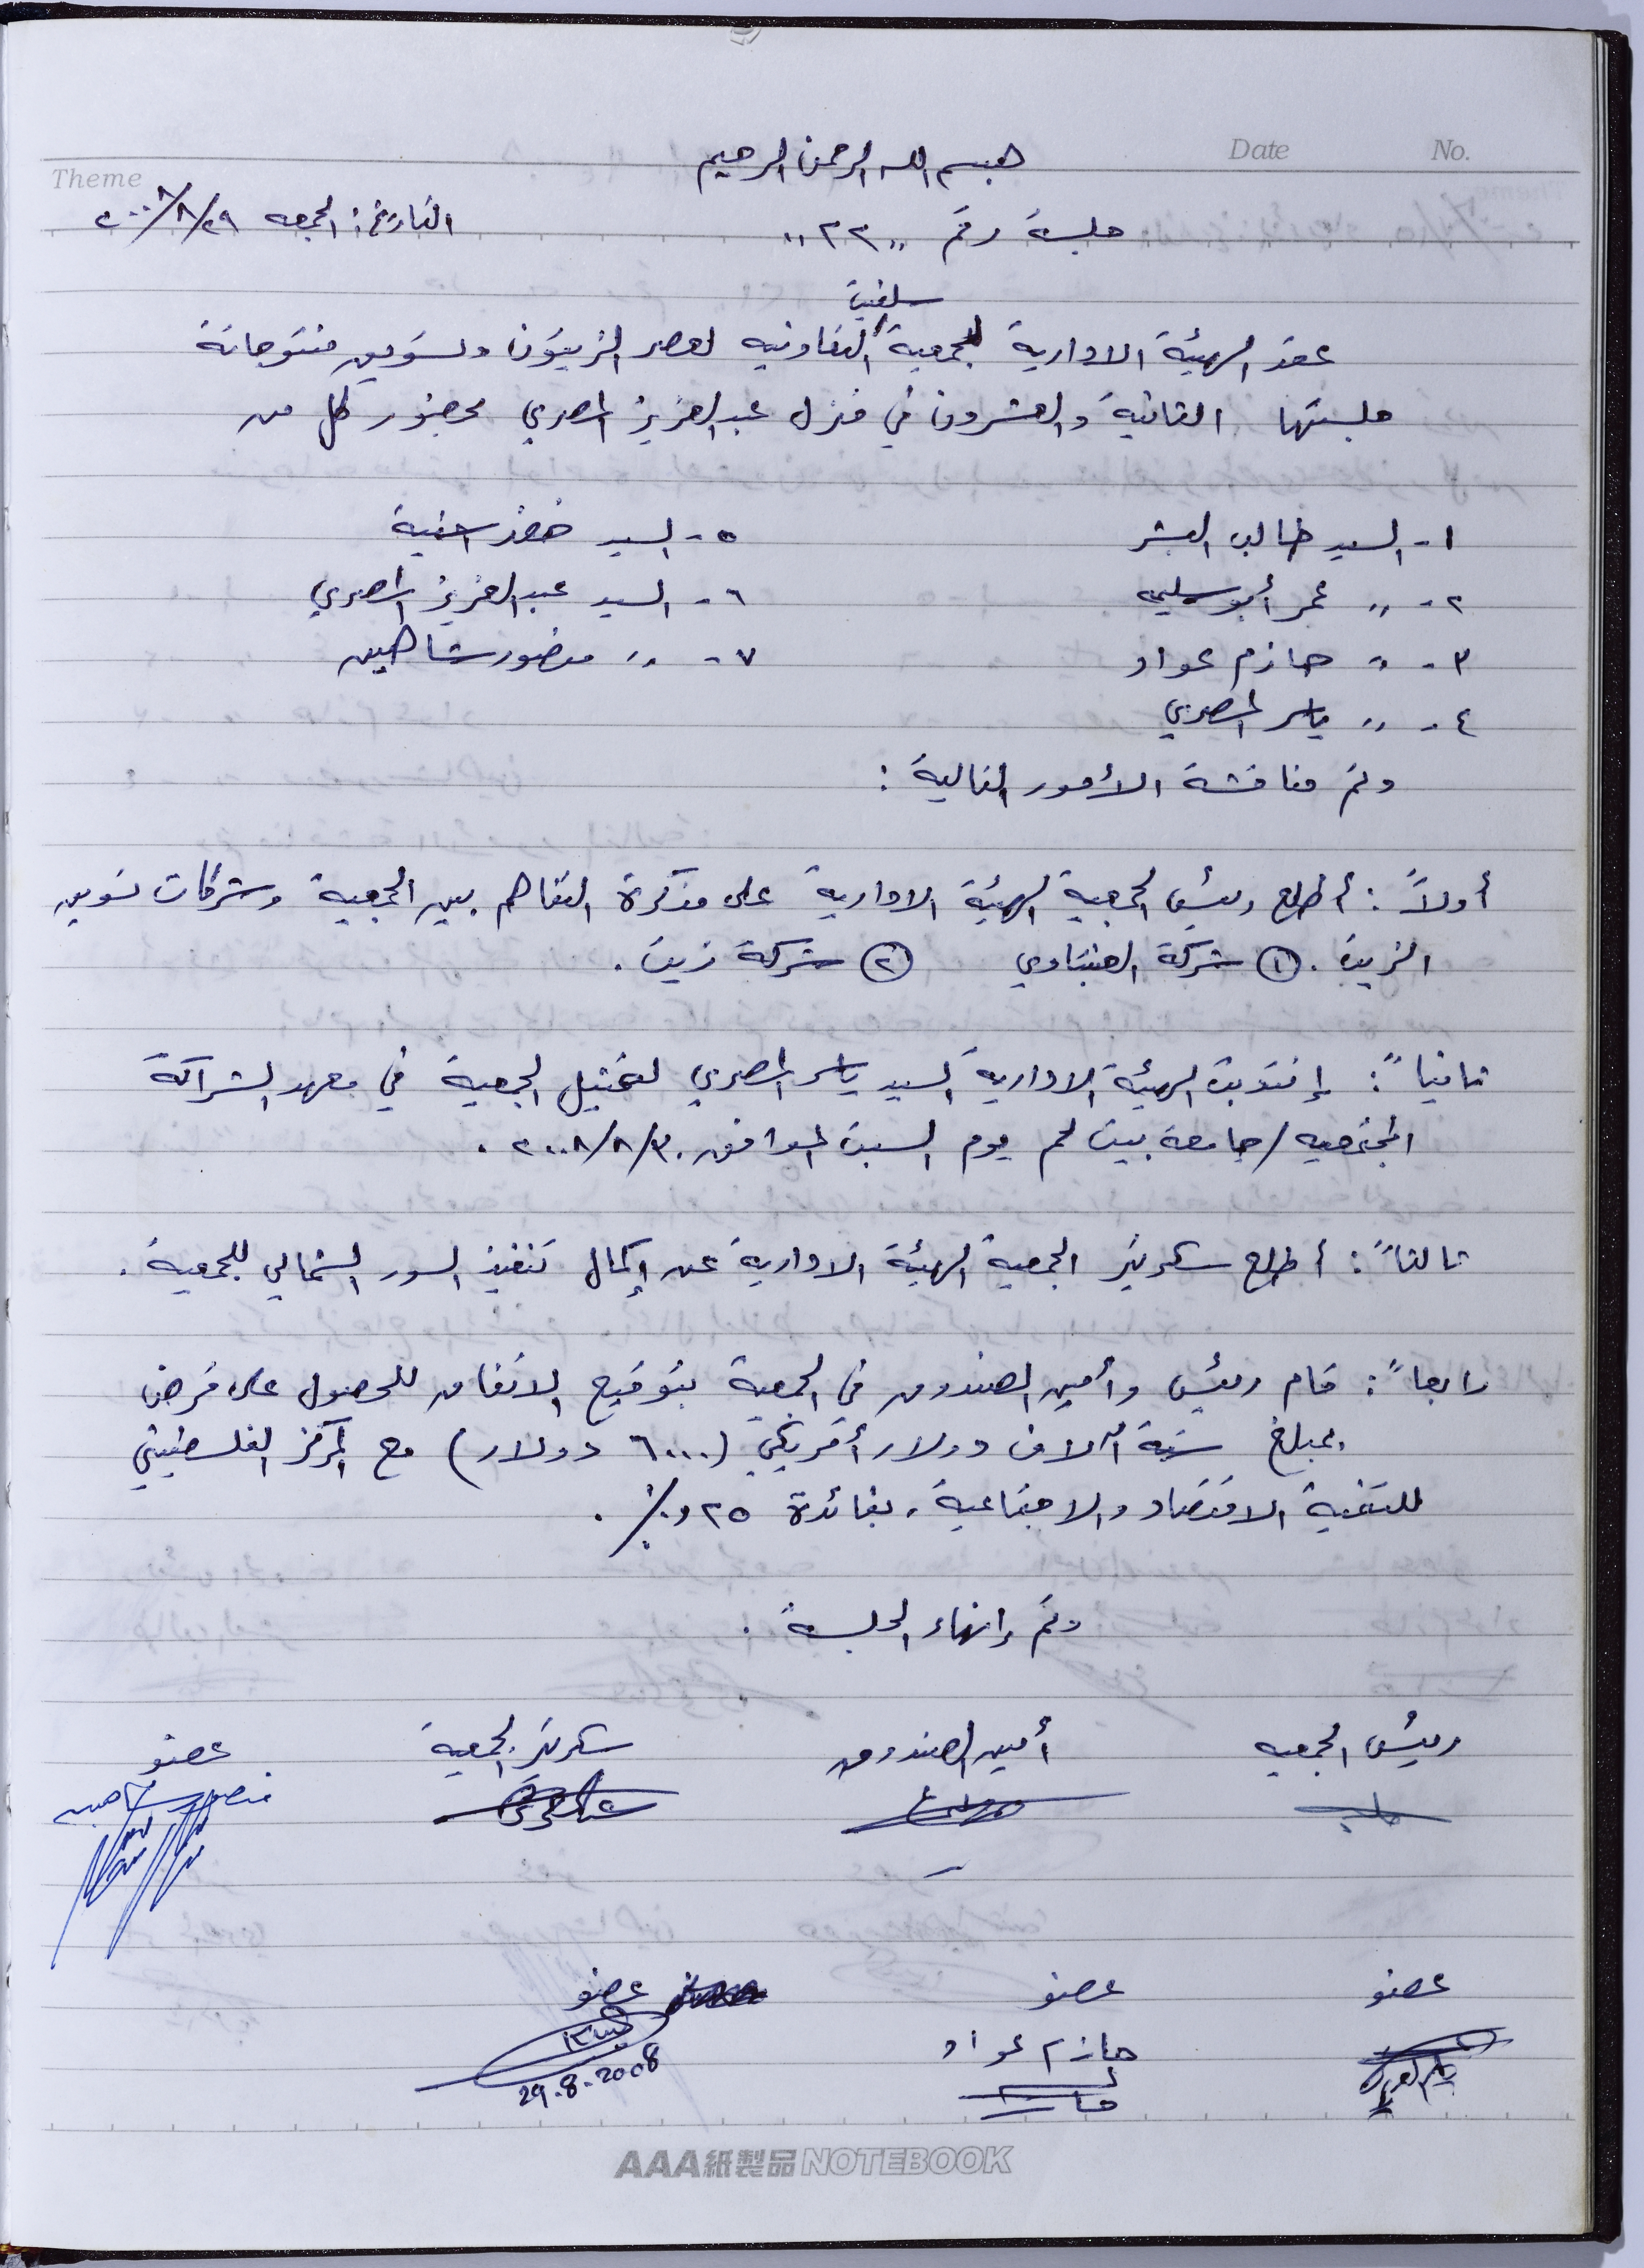 No.
Date
Theme
بسم الله الرحمن الرحيم
جلسة رقم "٢٢"
التاريخ: الجمعه ٢٠٠٨/٨/٢٩
سلفيت
عقد الهيئة الادارية لجمعية التعاونيه لعصر الزيتون وتسويق منتوجاته
جلستها الثانية والعشرون في منزل عبد العزيز المصري بحضور كل من
١- السيد طالب البشر
٥- السيد خضر اشية
٢- " عمر أبو سليمه
٦- السيد عبد العزيز المصري
٣- " حازم عواد
٧- " منصور شاهين
٤- " ياسر المصري
وتم مناقشة الأمور التالية :
أولاً : أطلع رئيس الجمعية الهيئة الادارية على مذكرة التفاهم بين الجمعية وشركات تسويق
الزيت . ① شركة الهنتاوي ② شركة زيت .
ثانياً : إنتدبت الهيئة الادارية السيد ياسر المصري لتمثيل الجمعية في معهد الشراكة
المجتمعيه / جامعة بيت لحم يوم السبت الموافق ٢٠٠٨/٨/٣٠ .
ثالثاً : أطلع سكرتير الجمعية الهيئة الادارية عن إكمال تنفيذ السور الشمالي للجمعية .
رابعاً : قام رئيس وأمين الصندوق في الجمعية بتوقيع الاتفاق للحصول على قرض
بمبلغ ستة آلاف دولار أمريكي (٦٠٠٠ دولار) مع المركز الفلسطيني
للتنمية الاقتصاد والاجتماعية ، بفائدة ٢٥و٠٪ .
وتم إنهاء الجلسة .
رئيس الجمعيه
أمين الصندوق
سكرتير الجمعية
عضو
منصور شاهين
عضو
عضو
عضو
حازم عواد
29.8.2008
AAA紙製品NOTEBOOK